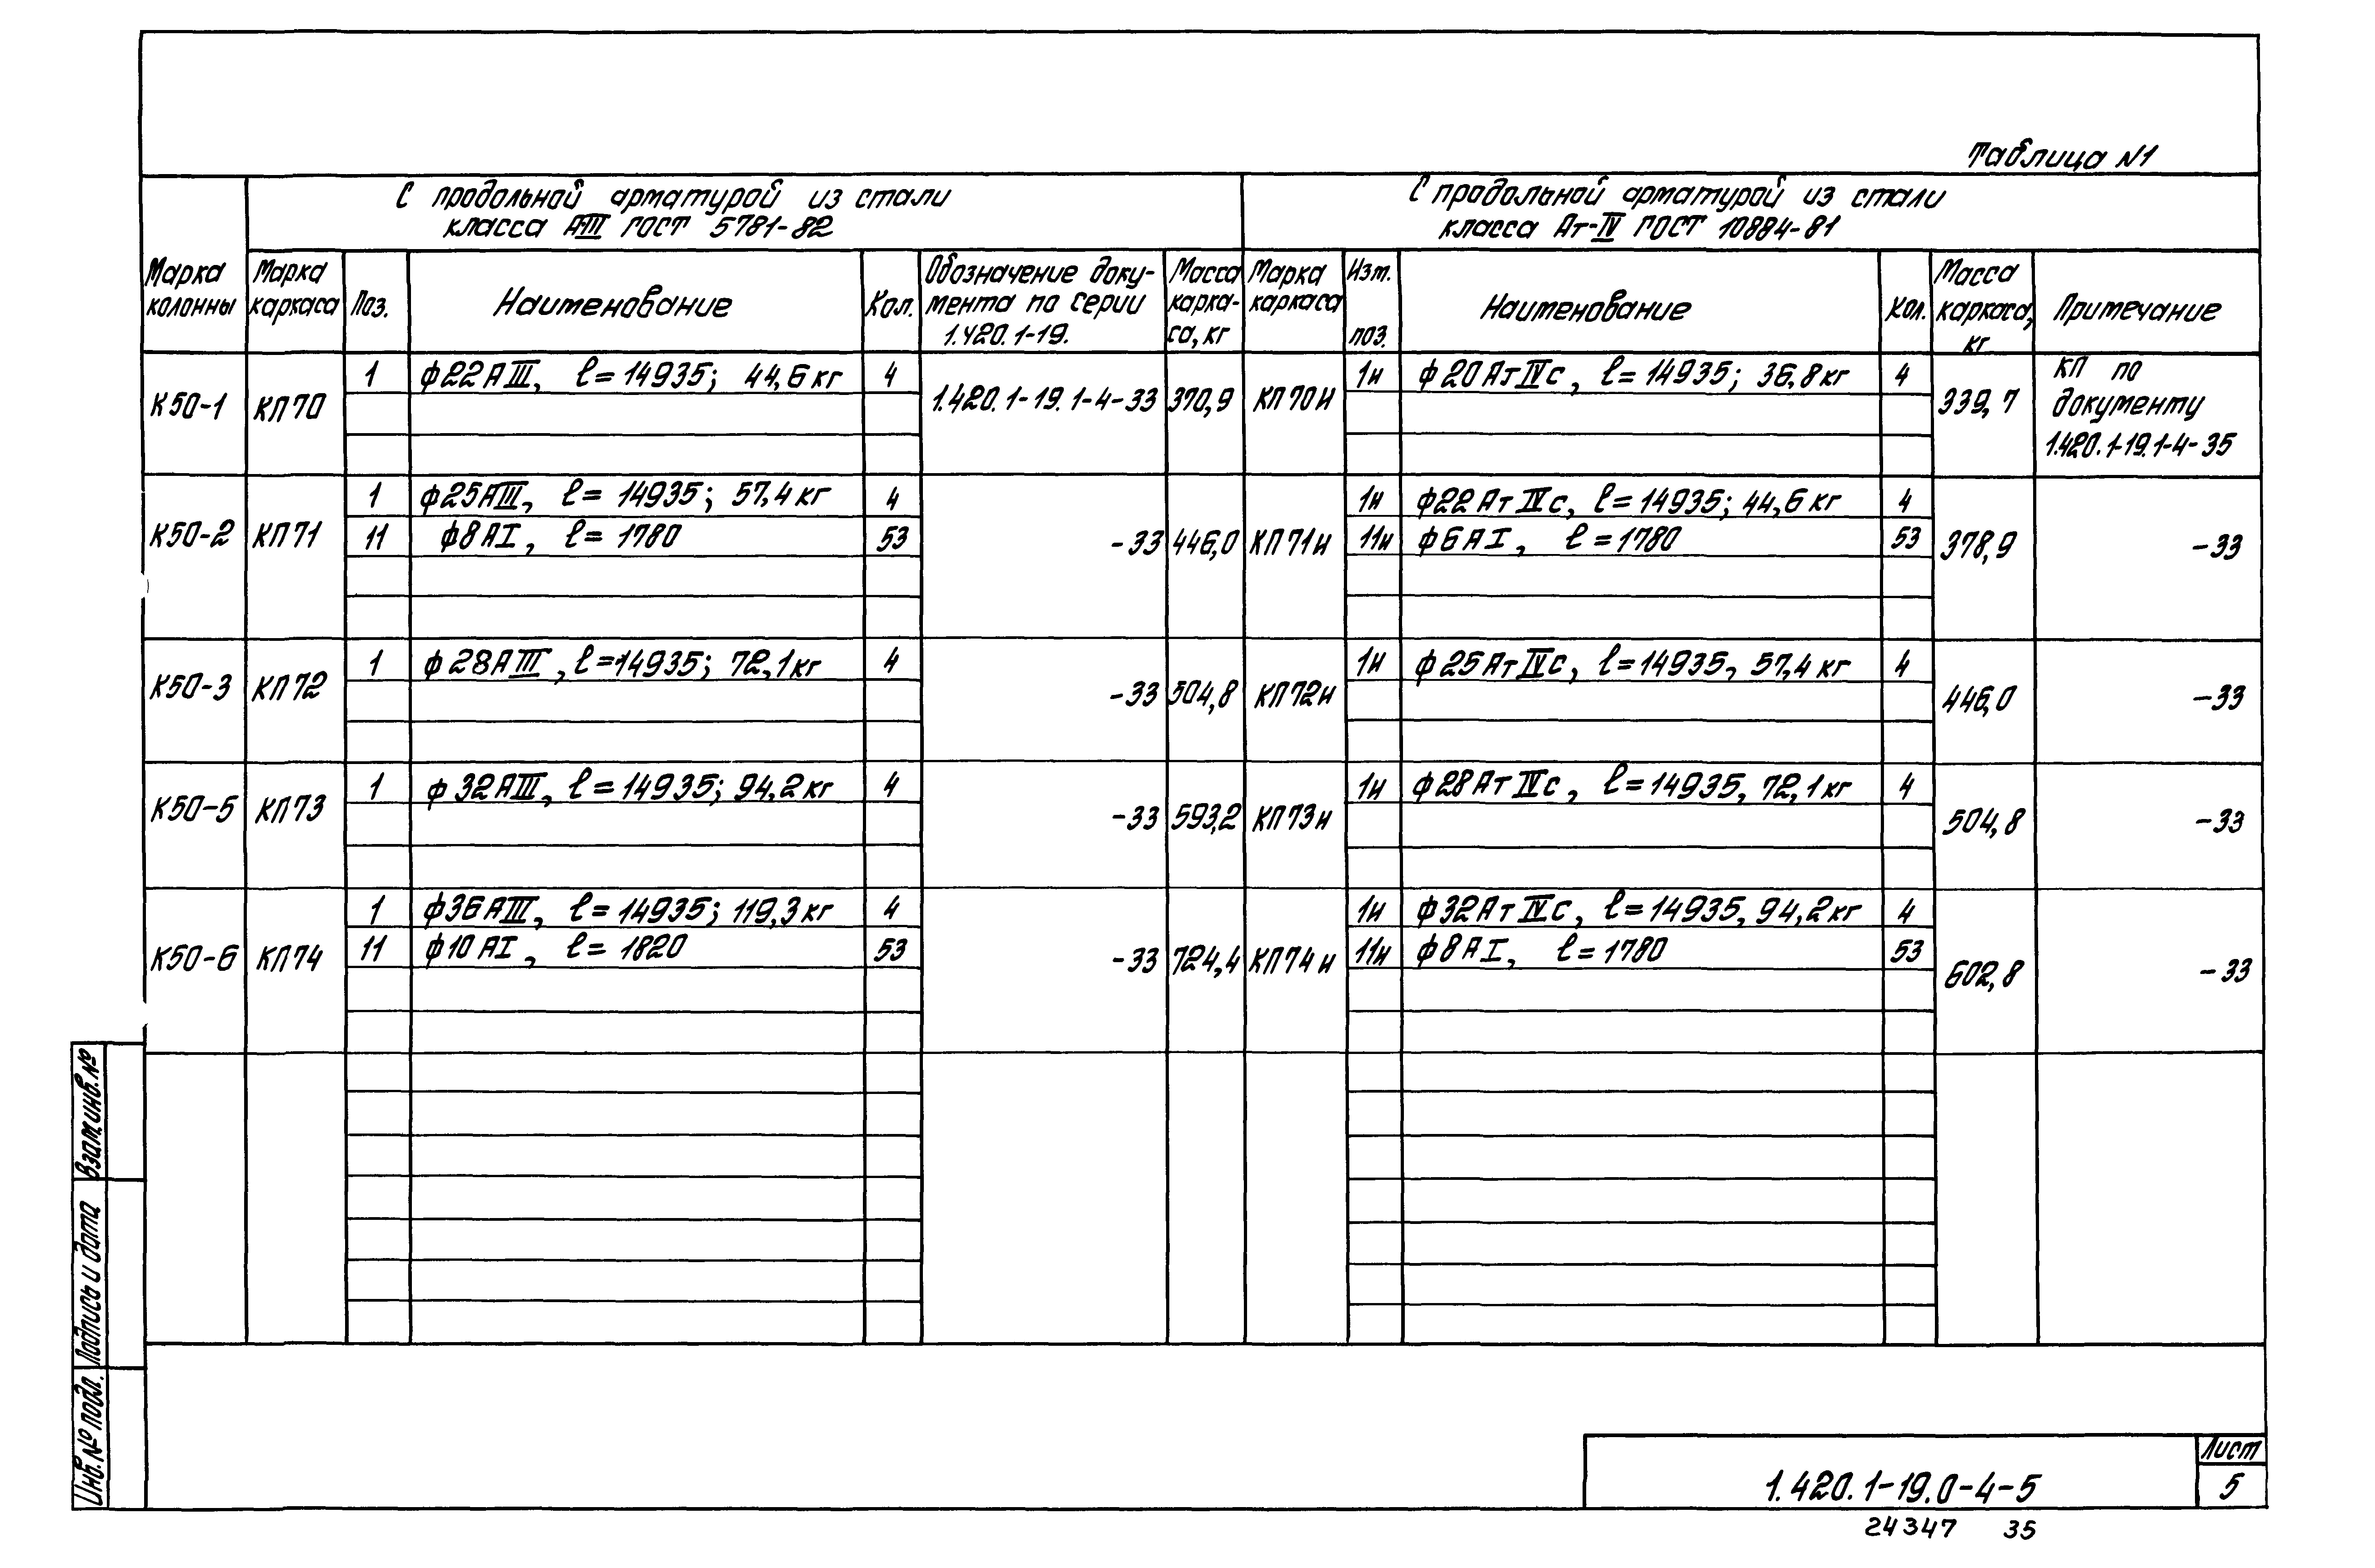 Таблица N1
С продольной арматурой из стали
класса АIII ГОСТ 5781-82
С продольной арматурой из стали
класса Ат-IV ГОСТ 10884-81
Марка колонны
Марка каркаса
Поз.
Наименование
Кол.
Обозначение доку-
мента по серии
1.420.1-19.
Масса
карка-
са, кг
Марка каркаса
Изм. поз.
Наименование
Кол.
Масса каркаса, кг
Примечание
К50-1 КП70 1 ф22АIII, ℓ=14935; 44,6кг 4 1.420.1-19.1-4-33 370,9 КП70И 1и ф20АтIVс, ℓ=14935; 36,8кг 4 339,7 КП по
документу
1.420.1-19.1-4-35
К50-2 КП71 1 ф25АIII, ℓ=14935; 57,4кг 4 -33 446,0 КП71и 1и ф22АтIVс, ℓ=14935; 44,6кг 4 378,9 -33
11 ф8АI, ℓ=1780 53 11и ф6АI, ℓ=1780 53
К50-3 КП72 1 ф28АIII, ℓ=14935; 72,1кг 4 -33 504,8 КП72и 1и ф25АтIVс, ℓ=14935, 57,4кг 4 446,0 -33
К50-5 КП73 1 ф32АIII, ℓ=14935; 94,2кг 4 -33 593,2 КП73и 1и ф28АтIVс, ℓ=14935, 72,1кг 4 504,8 -33
К50-6 КП74 1 ф36АIII, ℓ=14935; 119,3кг 4 -33 724,4 КП74и 1и ф32АтIVс, ℓ=14935, 94,2кг 4 602,8 -33
11 ф10АI, ℓ=1820 53 11и ф8АI, ℓ=1780 53
Взам.инв.№
Подпись и дата
Инв.№ подл.
1.420.1-19.0-4-5
Лист
5
24347 35